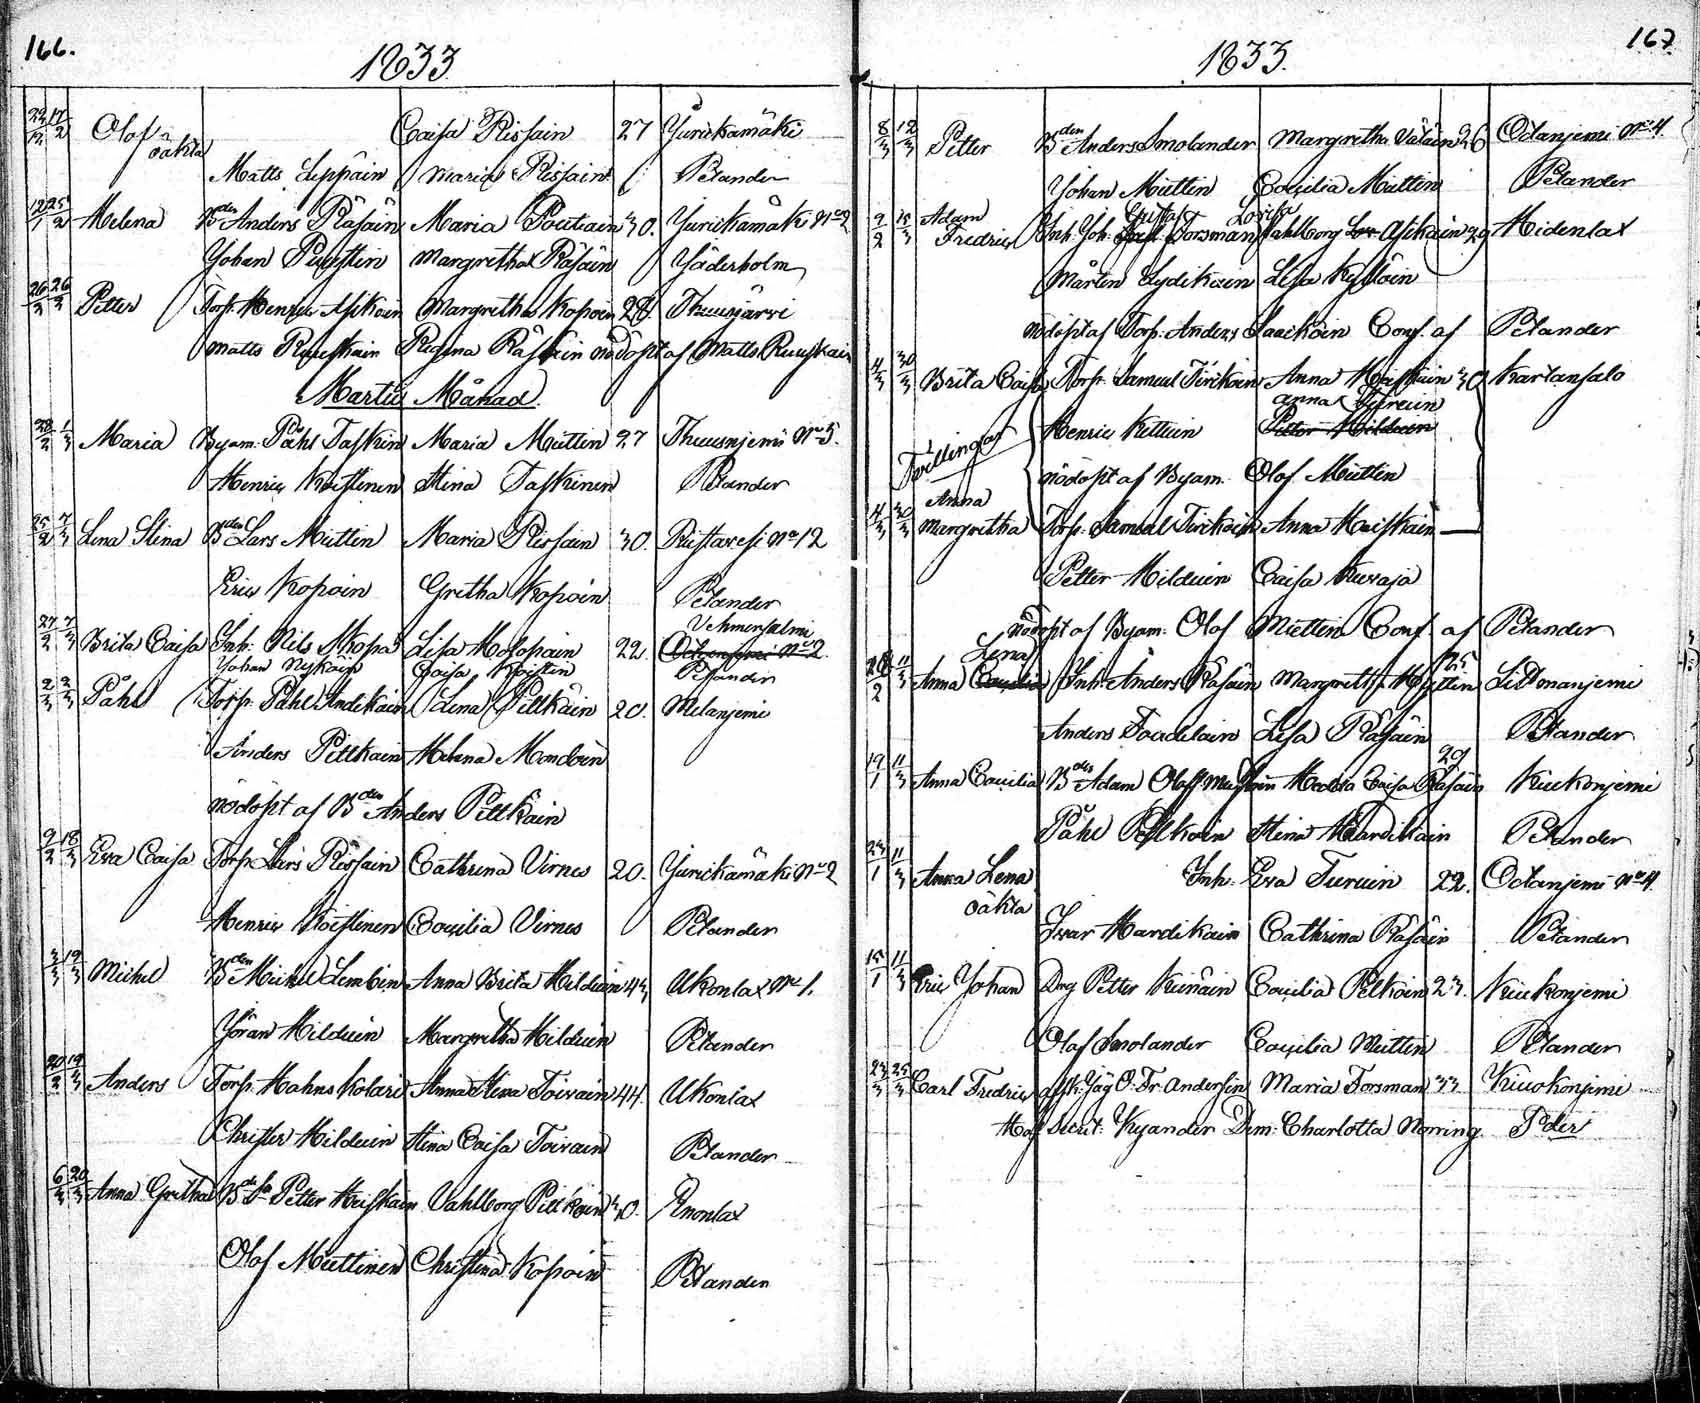 166.
1833.
22/12 17/2 Olof Caisa Rissain 27 Jurickamäki
oäkta
Matts Leppäin Maria Rissain Petander
19/1 25/2 Helena Bden Anders Räsäin Maria Poutiain 30. Jurickamäki No 2
Johan Puustin Margretha Räsäin Söderholm
26/2 Petter Torp. Henric Asikain Margretha Kopoin 28. Thuusjärvi
Matts Ruuskain Regina Räsäin nödöpt af Matts Ruuskain
Martii Månad.
28/2 1/3 Maria Byam. Påhl Taskin Maria Miettin 27 Thuusnjemi No 5.
Henric Koistinen Stina Taskinen Petander
25/2 7/3 Lena Stina Bden Lars Miettin Maria Rissain 30. Ristavesi No 12
Eric Kopoin Gretha Kopoin Petander
Vehmersalmi
27/2 7/3 Brita Caisa Inh. Nils Skopa Lisa Holopain 22. No 2.
Johan Nykäin Caisa Koistin Petander
2/3 Påhl Torp. Påhl Andikain Lena Pittkäin 20. Melanjemi
Anders Pittkain Helena Mondoin
nödöpt af Bden Anders Pittkäin
9/2 18/3 Eva Caisa Torp. Lars Rissain Cathrina Virnes 20. Jurickamäki No 2
Henric Koistinen Cecilia Virnes Petander
3/3 19/3 Michel Bden Michel Lembin Anna Brita Hilduin 43 Ukonlax No 1.
Jöran Hilduin Margretha Hilduin Petander
20/2 19/3 Anders Torp. Hahns Kolari Anna Stina Toivain 44. Ukonlax
Christer Hilduin Stina Caisa Toivain Petander
6/3 20/3 Anna Gretha Petter Heiskain Vahlborg Pittkäin 30. Enonlax
Olof Miettinen Christina Kopoin Petander
167.
1833.
8/3 12/3 Petter Bden Anders Smolander Margretha Väläin 26 Odanjemi No 4.
Johan Miettin Cecilia Miettin Petander
Gustaf Lovisa
9/2 15/3 Adam Fredric Inh. Joh. Forsman Vahlborg Asikain 29 Hidenlax
Mårten Lydikain Lisa Kyllöin
nödöpt af Torp. Anders Laackoin Conf. af Petander
4/3 30/3 Brita Caisa Torp. Samuel Tirikain Anna Heiskain 30 Kartansalo
Anna Turuin
Henric Kettuin Petter Hilduin
Tvillingar
nödöpt af Byam. Olof Miettin
4/3 30/3 Anna Margretha Torp. Samuel Tirikain Anna Heiskain —
Petter Hilduin Caisa Kuvaja
nödöpt af Byam. Olof Miettin Conf. af Petander
Lena
11/3 Anna Cecilia Inh. Anders Räsäin Margretha Miettin 25 Litmanjemi
Anders Taadelain Lisa Räsäin Petander
19/1 11/3 Anna Cecilia Adam Hedda Caisa Räsäin 29 Kiukonjemi
Påhl Pelkoin Stina Hardikain Petander
23/1 11/3 Anna Lena Inh. Eva Turuin 22. Odanjemi No 4.
oäkta
Ivar Hardikain Cathrina Räsäin Petander
15/1 11/3 Eric Johan Drg Petter Kinäin Cecilia Pelkoin 23. Kiukonjemi
Olof Smolander Cecilia Miettin Petander
23/3 25/3 Carl Fredric O. Fr. Andersin Maria Forsman 33 Kiuokonjemi
Secret. Kyander Dem: Charlotta Norring Pder